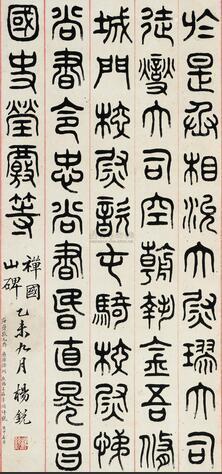 於是丞相沇太尉璆大司
徒燮大司空翰執金吾脩
城門校尉歆屯騎校尉悌
尚書令忠尚書昏直晃昌
國史瑩覈等
禪國
山碑
乙未九月 楊銳